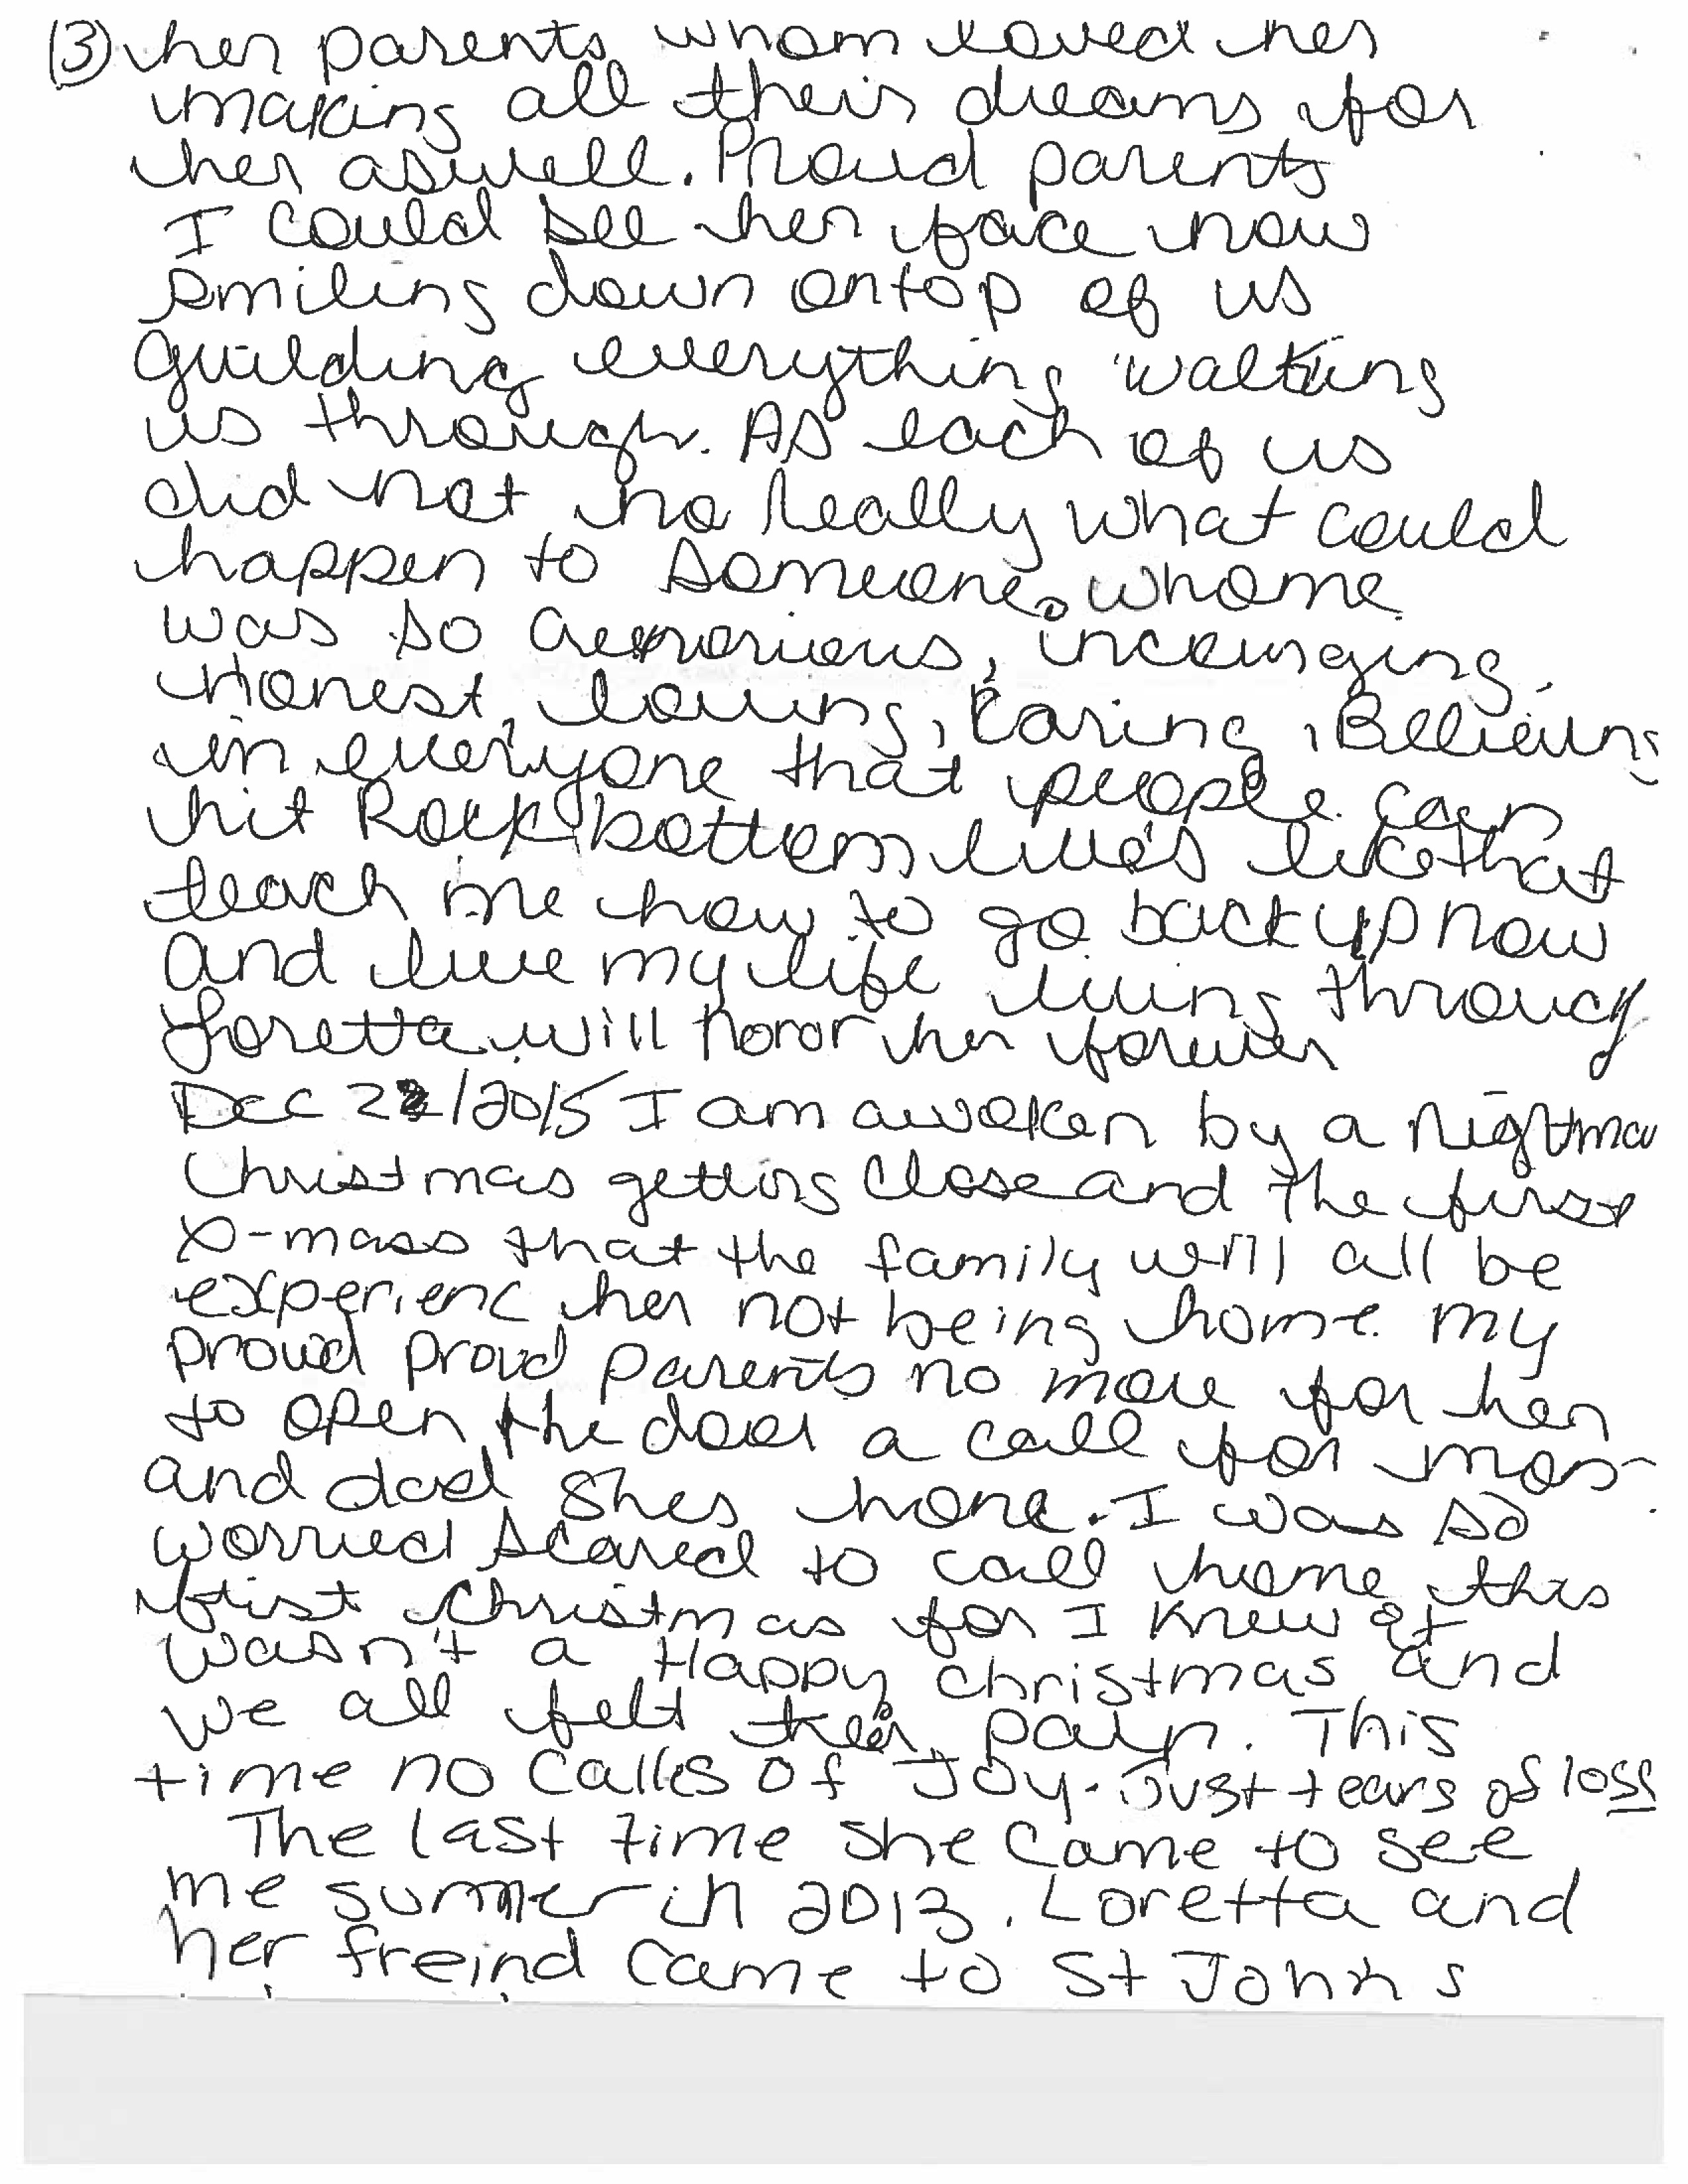 (3) her parents whom loved her
making all their dreams for
her aswell. Proud parents
I could see her face now
smiling down ontop of us
guilding everything walking
us through. As each of us
did not no really what could
happen to someone whome
was so
Honest, loving, Caring, Believing
in everyone that people can
hit Rock bottom like that
teach me how to go back up now
and live my life living through
Loretta will honor her forever
Dec /2015 I am awoken by a
Christmas getting close and the first
X-mass that the family will all be
experienc her not being home my
proud proud parents no more for her
to open the door a call for mom
and dad shes home. I was so
worried scared to call home this
frist Christmas for I knew it
wasn't a Happy christmas and
we all felt their pain. This
time no calls of Joy. Just tears of loss
The last time she came to see
me summer in 2013. Loretta and
her freind came to St Johns